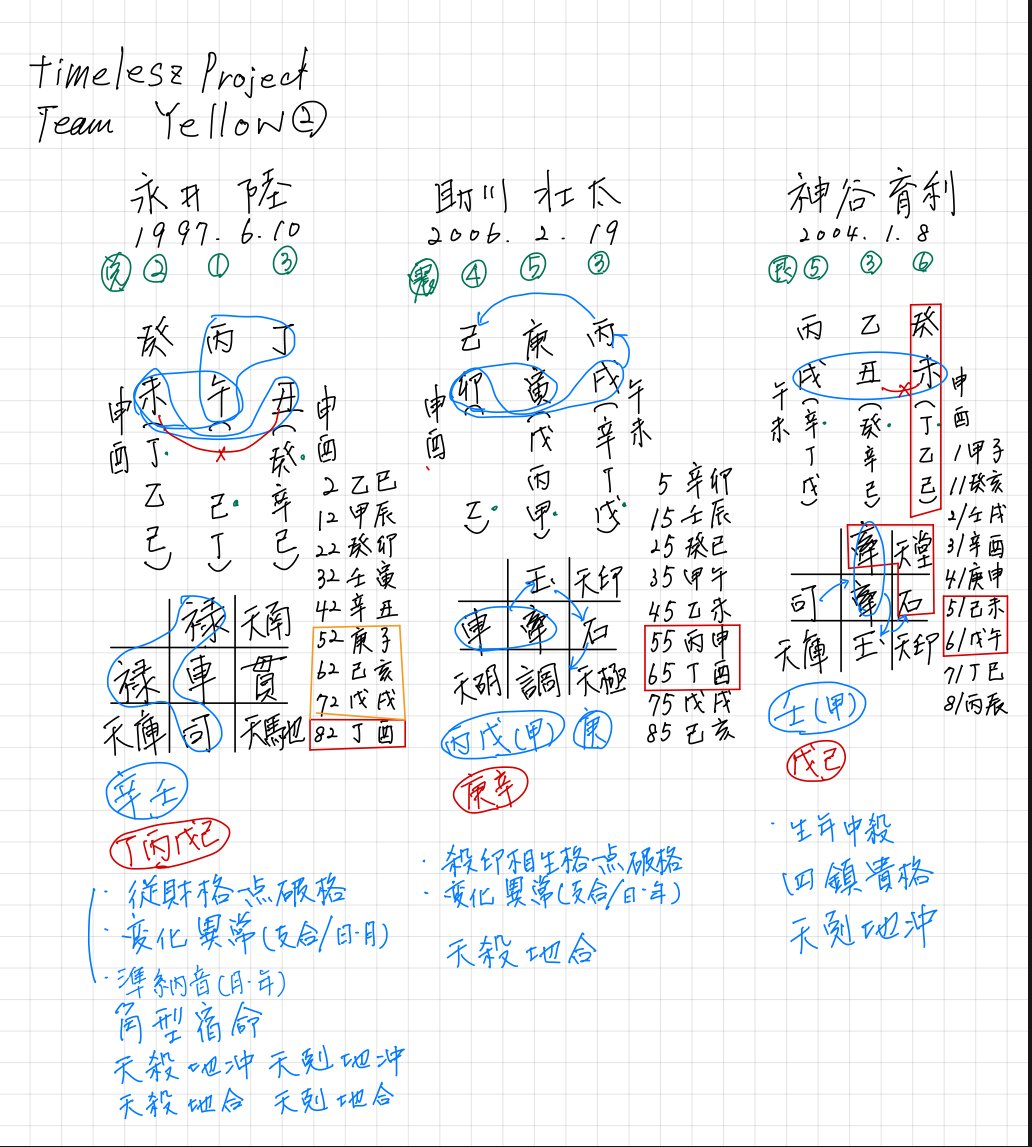 timelesz Project
Team Yellow②
永井 陸
1997. 6. 10
② ① ③
癸 丙 丁
未 午 丑
申酉
丁 癸
乙 己 辛
己 丁 己
申酉
2 乙巳
12 甲辰
22 癸卯
32 壬寅
42 辛丑
52 庚子
62 己亥
72 戊戌
82 丁酉
禄 天南
禄 車 貫
天庫 司 天馳
辛壬
丁丙戊己
・従財格一点破格
・変化異常(支合/日・月)
・準納音(月・年)
角型宿命
天殺地冲 天剋地冲
天殺地合 天剋地合
助川 壮太
2006. 2. 19
④ ⑤ ③
己 庚 丙
卯 寅 戌
申酉
戊 辛
丙 丁
乙 甲 戊
午未
5 辛卯
15 壬辰
25 癸巳
35 甲午
45 乙未
55 丙申
65 丁酉
75 戊戌
85 己亥
玉 天印
車 牽 石
天胡 調 天極
丙戊(甲) 庚
庚辛
・殺印相生格一点破格
・変化異常(支合/日・年)
天殺地合
神谷育利
2004. 1. 8
⑤ ③ ⑥
丙 乙 癸
戌 丑 未
午未
辛 癸 丁
丁 辛 乙
戊 己 己
申酉
1 甲子
11 癸亥
21 壬戌
31 辛酉
41 庚申
51 己未
61 戊午
71 丁巳
81 丙辰
牽 天堂
司 牽 石
天庫 玉 天印
壬(甲)
戊己
・生年中殺
四鎮貴格
天剋地冲